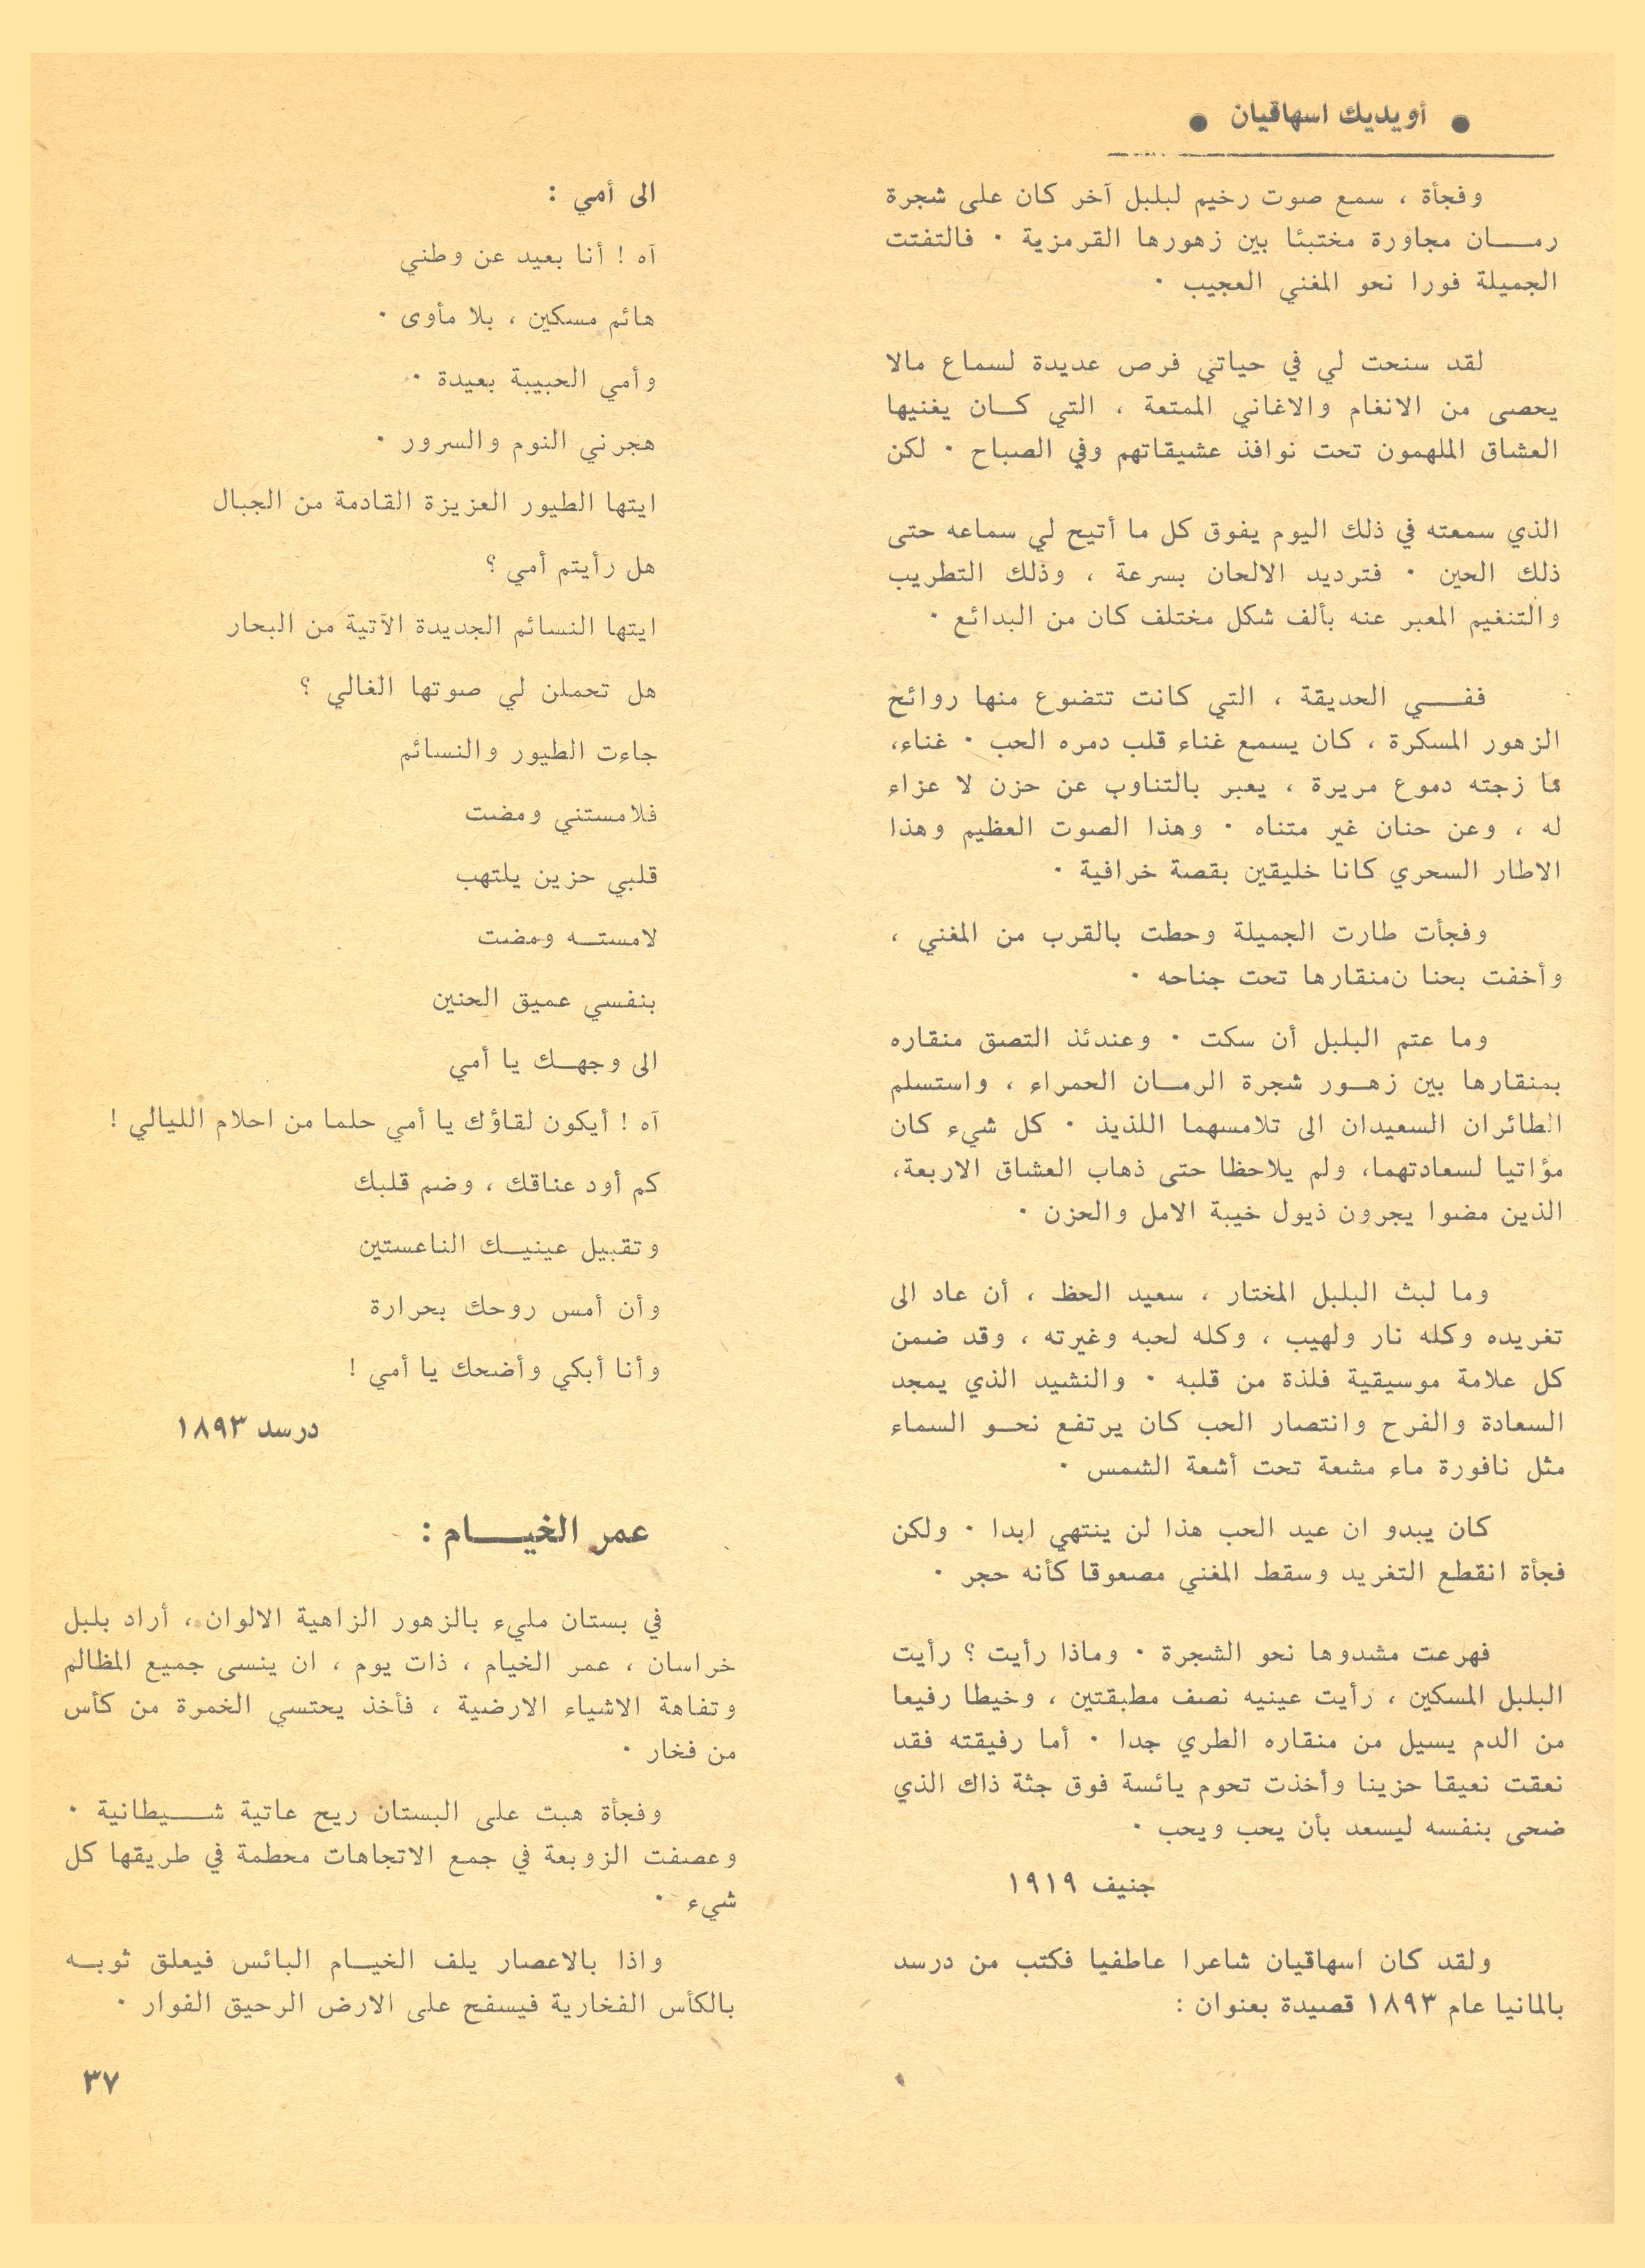 ● أويديك اسهاقيان ●
وفجأة ، سمع صوت رخيم لبلبل آخر كان على شجرة
رمـــان مجاورة مختبئا بين زهورها القرمزية . فالتفتت
الجميلة فورا نحو المغني العجيب .
لقد سنحت لي في حياتي فرص عديدة لسماع مالا
يحصى من الانغام والاغاني الممتعة ، التي كــان يغنيها
العشاق الملهمون تحت نوافذ عشيقاتهم وفي الصباح . لكن
الذي سمعته في ذلك اليوم يفوق كل ما أتيح لي سماعه حتى
ذلك الحين . فترديد الالحان بسرعة ، وذلك التطريب
والتنغيم المعبر عنه بألف شكل مختلف كان من البدائع .
ففـــي الحديقة ، التي كانت تتضوع منها روائح
الزهور المسكرة ، كان يسمع غناء قلب دمره الحب . غناء،
ما زجته دموع مريرة ، يعبر بالتناوب عن حزن لا عزاء
له ، وعن حنان غير متناه . وهذا الصوت العظيم وهذا
الاطار السحري كانا خليقين بقصة خرافية .
وفجأت طارت الجميلة وحطت بالقرب من المغني ،
وأخفت بحنا ن‌منقارها تحت جناحه .
وما عتم البلبل أن سكت . وعندئذ التصق منقاره
بمنقارها بين زهــور شجرة الرمــان الحمراء ، واستسلم
الطائران السعيدان الى تلامسهما اللذيذ . كل شيء كان
مؤاتيا لسعادتهما، ولم يلاحظا حتى ذهاب العشاق الاربعة،
الذين مضوا يجرون ذيول خيبة الامل والحزن .
وما لبث البلبل المختار ، سعيد الحظ ، أن عاد الى
تغريده وكله نار ولهيب ، وكله لحبه وغيرته ، وقد ضمن
كل علامة موسيقية فلذة من قلبه . والنشيد الذي يمجد
السعادة والفرح وانتصار الحب كان يرتفع نحــو السماء
مثل نافورة ماء مشعة تحت أشعة الشمس .
كان يبدو ان عيد الحب هذا لن ينتهي ابدا . ولكن
فجأة انقطع التغريد وسقط المغني مصعوقا كأنه حجر .
فهرعت مشدوها نحو الشجرة . وماذا رأيت ؟ رأيت
البلبل المسكين ، رأيت عينيه نصف مطبقتين ، وخيطا رفيعا
من الدم يسيل من منقاره الطري جدا . أما رفيقته فقد
نعقت نعيقا حزينا وأخذت تحوم يائسة فوق جثة ذاك الذي
ضحى بنفسه ليسعد بأن يحب ويحب .
جنيف ١٩١٩
ولقد كان اسهاقيان شاعرا عاطفيا فكتب من درسد
بالمانيا عام ١٨٩٣ قصيدة بعنوان :
الى أمي :
آه ! أنا بعيد عن وطني
هائم مسكين ، بلا مأوى .
وأمي الحبيبة بعيدة .
هجرني النوم والسرور .
ايتها الطيور العزيزة القادمة من الجبال
هل رأيتم أمي ؟
ايتها النسائم الجديدة الآتية من البحار
هل تحملن لي صوتها الغالي ؟
جاءت الطيور والنسائم
فلامستني ومضت
قلبي حزين يلتهب
لامستــه ومضت
بنفسي عميق الحنين
الى وجهــك يا أمي
آه ! أيكون لقاؤك يا أمي حلما من احلام الليالي !
كم أود عناقك ، وضم قلبك
وتقبيل عينيــك الناعستين
وأن أمس روحك بحرارة
وأنا أبكي وأضحك يا أمي !
درسد ١٨٩٣
عمر الخيـــام :
في بستان مليء بالزهور الزاهية الالوان ، أراد بلبل
خراسان ، عمر الخيام ، ذات يوم ، ان ينسى جميع المظالم
وتفاهة الاشياء الارضية ، فأخذ يحتسي الخمرة من كأس
من فخار .
وفجأة هبت على البستان ريح عاتية شــيطانية .
وعصفت الزوبعة في جمع الاتجاهات محطمة في طريقها كل
شيء .
واذا بالاعصار يلف الخيــام البائس فيعلق ثوبــه
بالكأس الفخارية فيسفح على الارض الرحيق الفوار .
٣٧